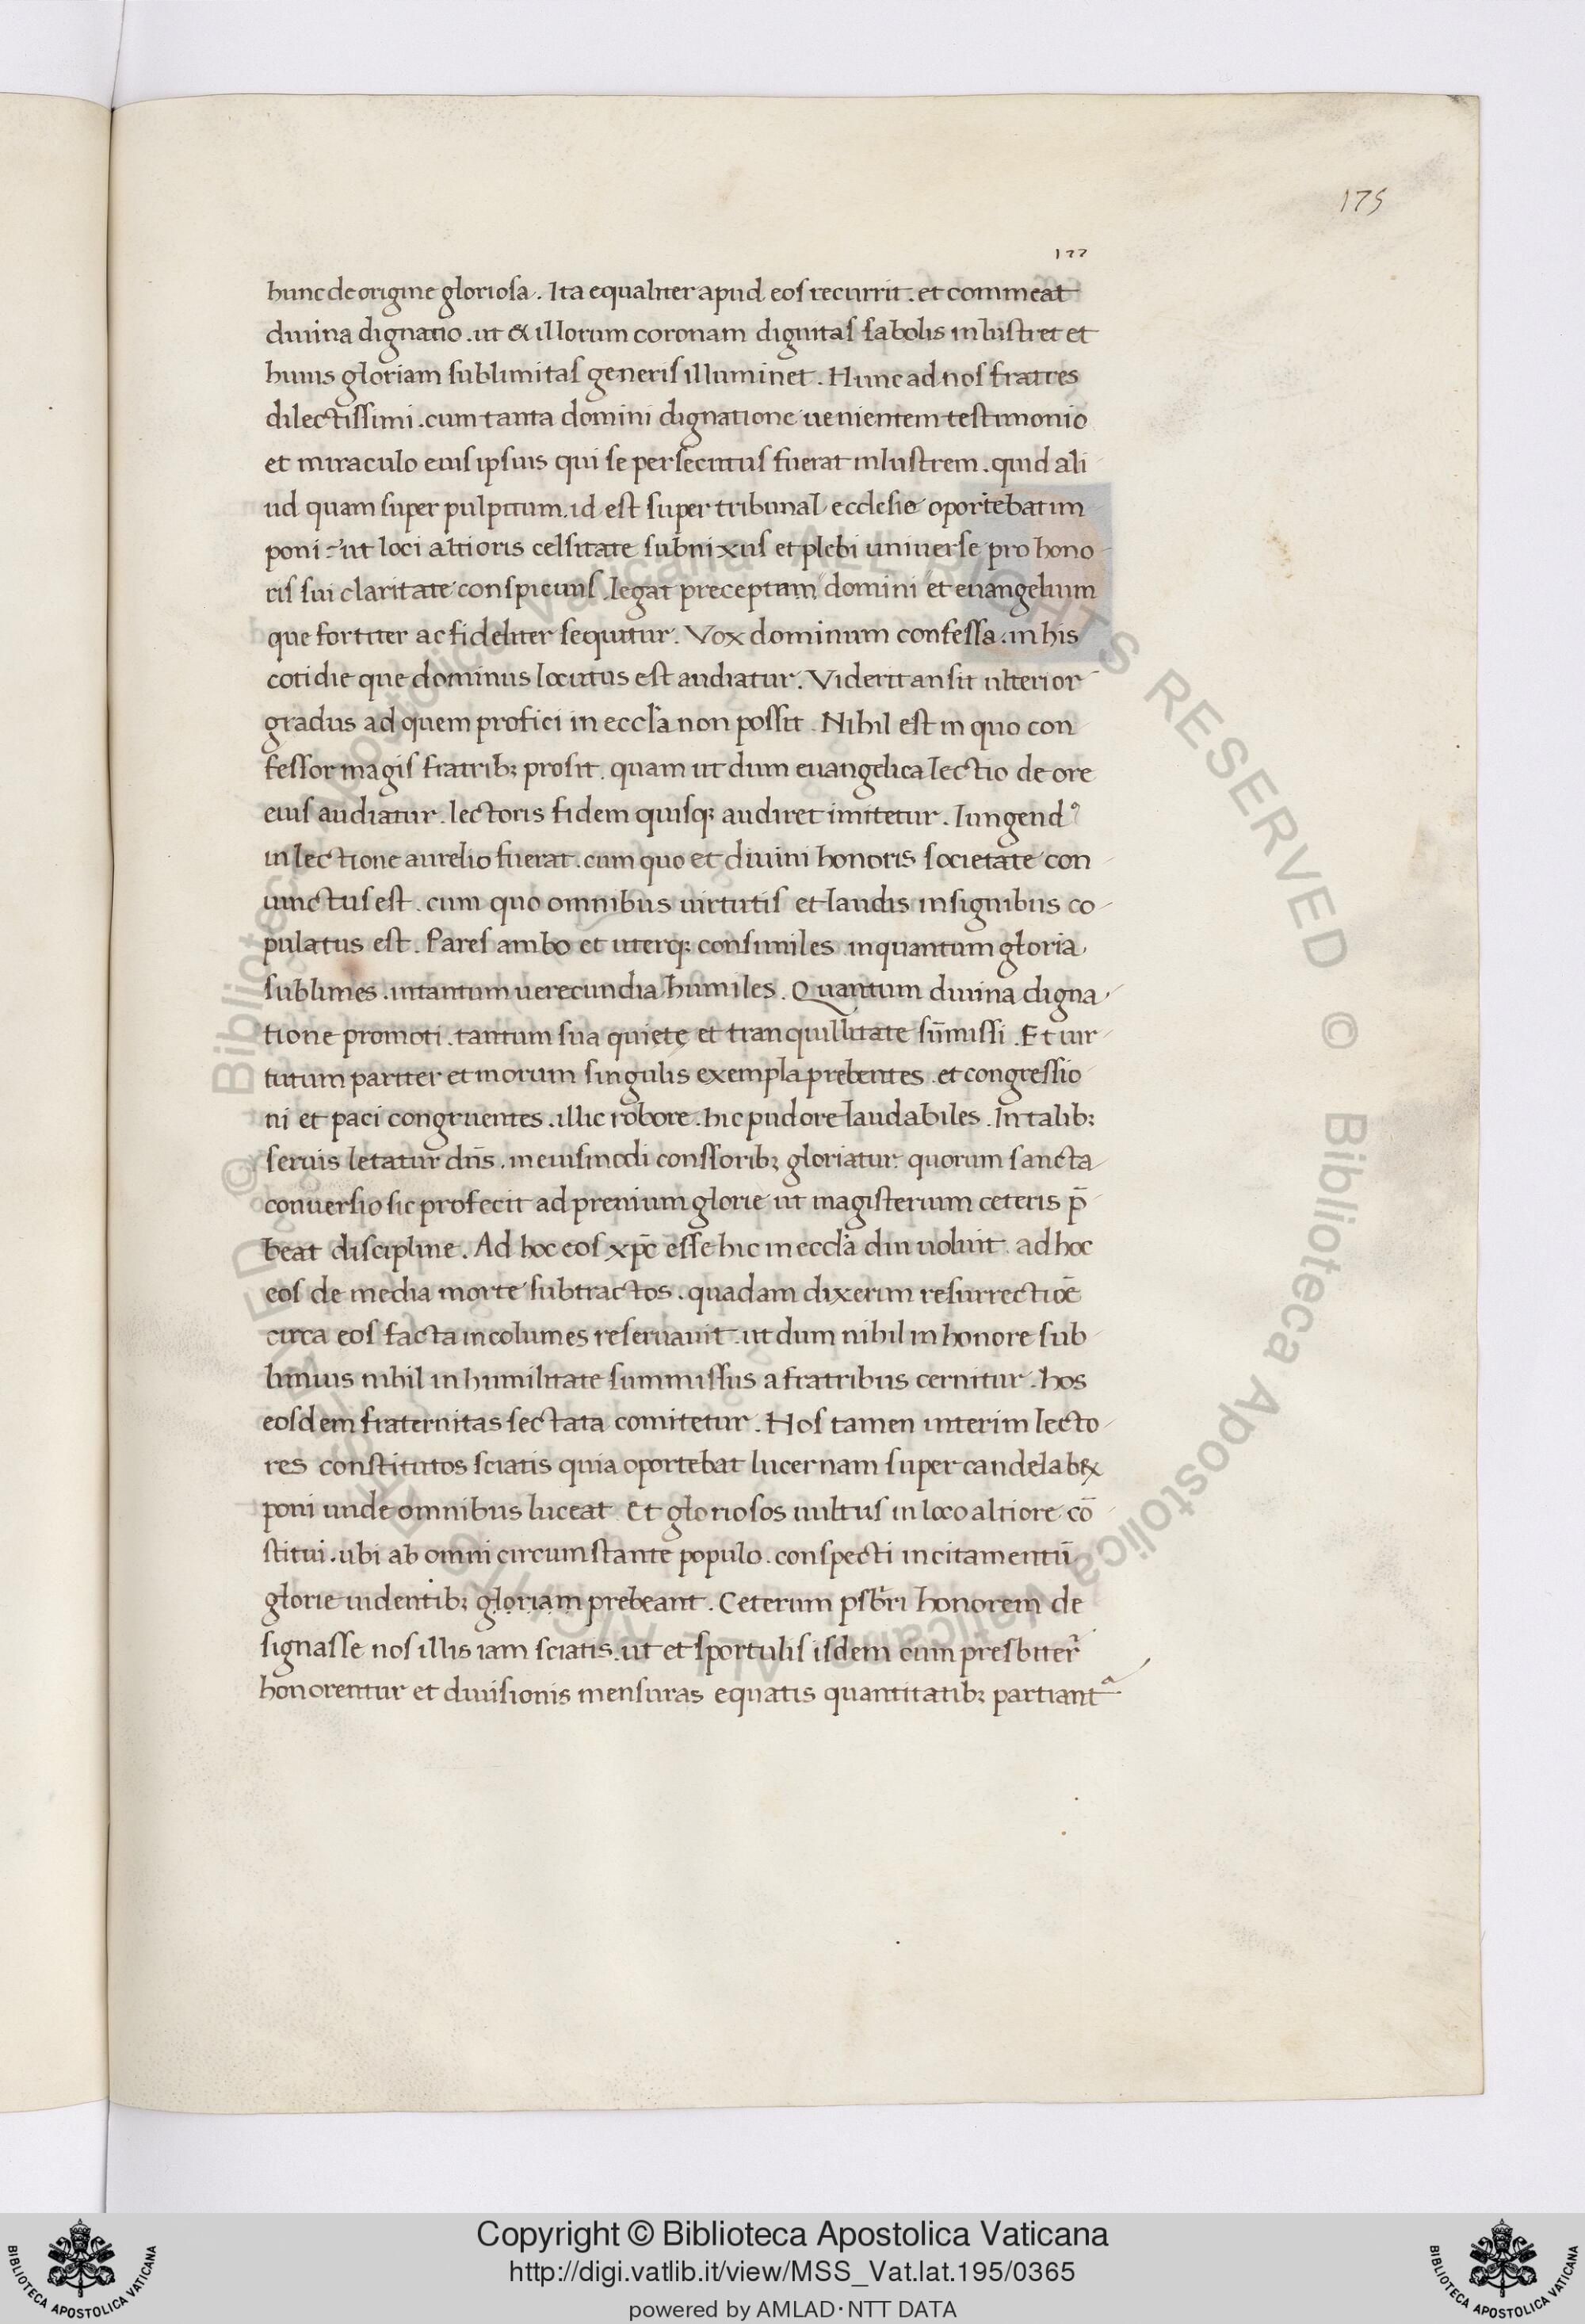 175
177
hunc de origine gloriosa. Ita equaliter apud eos recurrit. et commeat
diuina dignatio. ut & illorum coronam dignitas sabolis inlustret et
huius gloriam sublimitas generis illuminet. Hunc ad nos fratres
dilectissimi. cum tanta domini dignatione uenientem testimonio
et miraculo eius ipsius qui se persecutus fuerat inlustrem. quid ali
ud quam super pulpitum. id est super tribunal ecclesie oportebat im
poni ut loci altioris celsitate subnixus et plebi uniuerse pro hono
ris sui claritate conspicuus. legat preceptum domini et euangelium
que fortiter ac fideliter sequitur. Vox dominum confessa. in his
cotidie que dominus locutus est audiatur. Viderit an sit ulterior
gradus ad quem profici in eccl̄a non possit. Nihil est in quo con
fessor magis fratrib; prosit. quam ut dum euangelica lectio de ore
eius audiatur. lectoris fidem quisq; audiret imitetur. Iungendꝰ
in lectione aurelio fuerat. cum quo et diuini honoris societate con
iunctus est. cum quo omnibus uirtutis et laudis insignibus co
pulatus est. Pares ambo et uterq; consimiles. inquantum gloria
sublimes. intantum uerecundia humiles. Quantum diuina digna
tione promoti. tantum sua quietę et tranquillitate sūmissi. Et uir
tutum pariter et morum singulis exempla prebentes. et congressio
ni et paci congruentes. illic robore. hic pudore laudabiles. In talib;
seruis letatur dn̄s. in eiusmodi conssorib; gloriatur. quorum sancta
conuersio sic profecit ad premium glorie ut magisterium ceteris p̄
beat discipline. Ad hoc eos xp̄c esse hic in eccl̄a diu uoluit. ad hoc
eos de media morte subtractos. quadam dixerim resurrectiōe
circa eos facta incolumes reseruauit. ut dum nihil in honore sub
limius nihil in humilitate summissus a fratribus cernitur. hos
eosdem fraternitas sectata comitetur. Hos tamen interim lecto
res constitutos sciatis quia oportebat lucernam super candelabꝝ
poni unde omnibus luceat. Et gloriosos uultus in loco altiore cō
stitui. ubi ab omni circumstante populo. conspecti incitamentū
glorie uidentib; gloriam prebeant. Ceterum psb̄ri honorem de
signasse nos illis iam sciatis. ut et sportulis isdem cum presbiter̄
honorentur et diuisionis mensuras equatis quantitatib; partiant
© Biblioteca Apostolica Vaticana ALL RIGHTS RESERVED
© Biblioteca Apostolica Vaticana ALL RIGHTS RESERVED
Copyright © Biblioteca Apostolica Vaticana
http://digi.vatlib.it/view/MSS_Vat.lat.195/0365
powered by AMLAD·NTT DATA
BIBLIOTECA APOSTOLICA VATICANA
BIBLIOTECA APOSTOLICA VATICANA